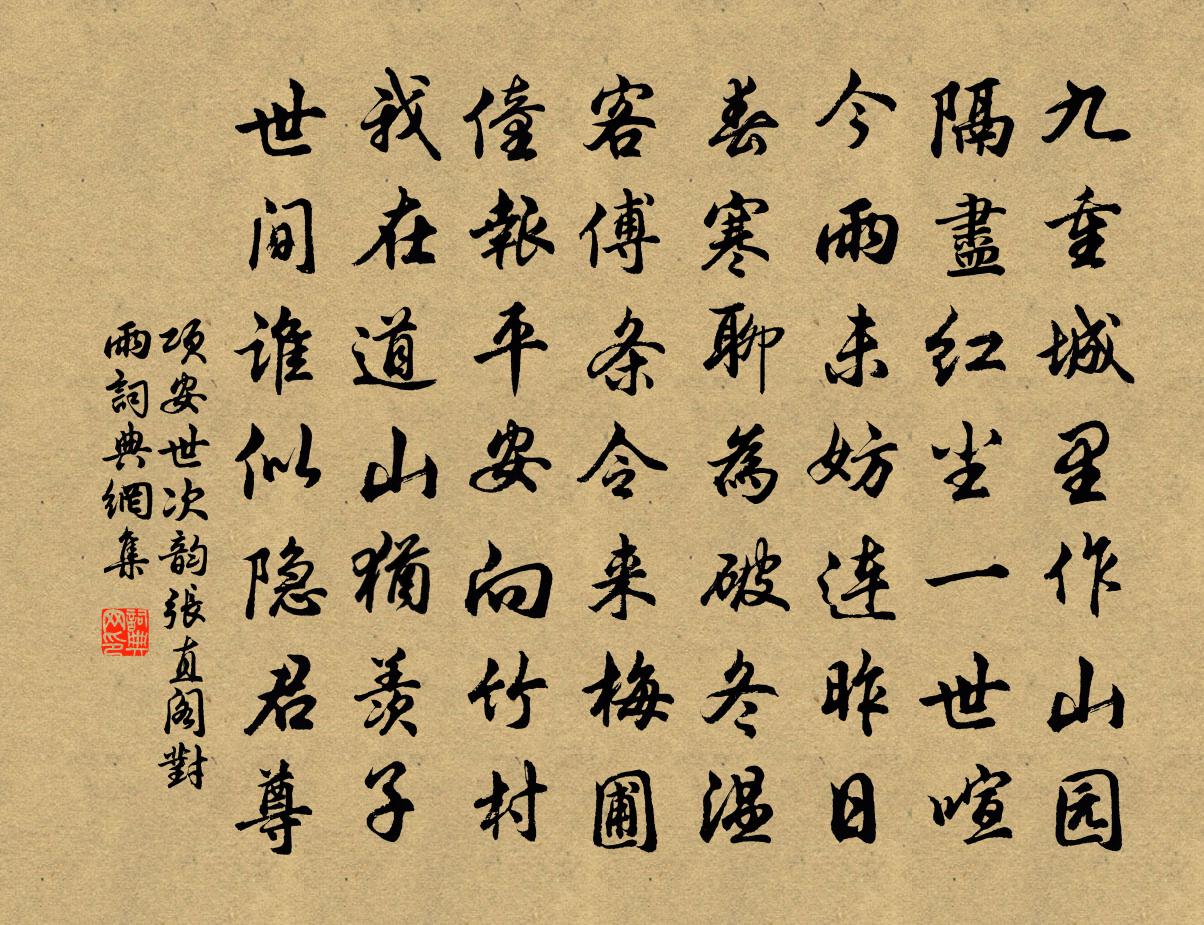 九重城里作山园
隔盡红尘一世喧
今雨未妨連昨日
春寒聊為破冬温
客傅条令来梅圃
僮報平安向竹村
我在道山猶羡子
世间谁似隐君尊
项安世次韵張直阁對
雨詞典網集
詞典网印